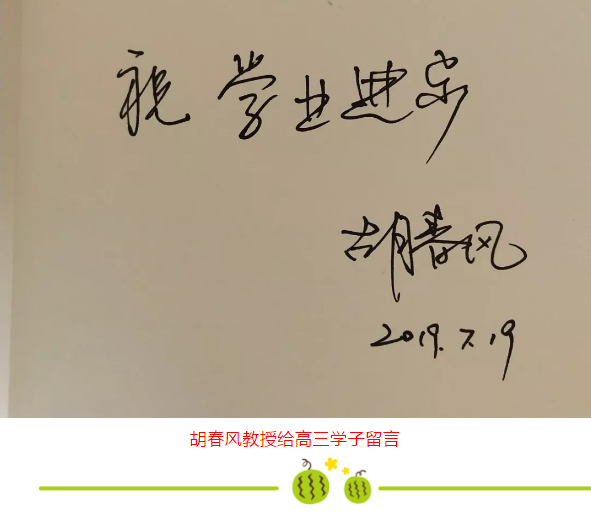 祝 学业进步
胡春风
2019.7.19
胡春风教授给高三学子留言